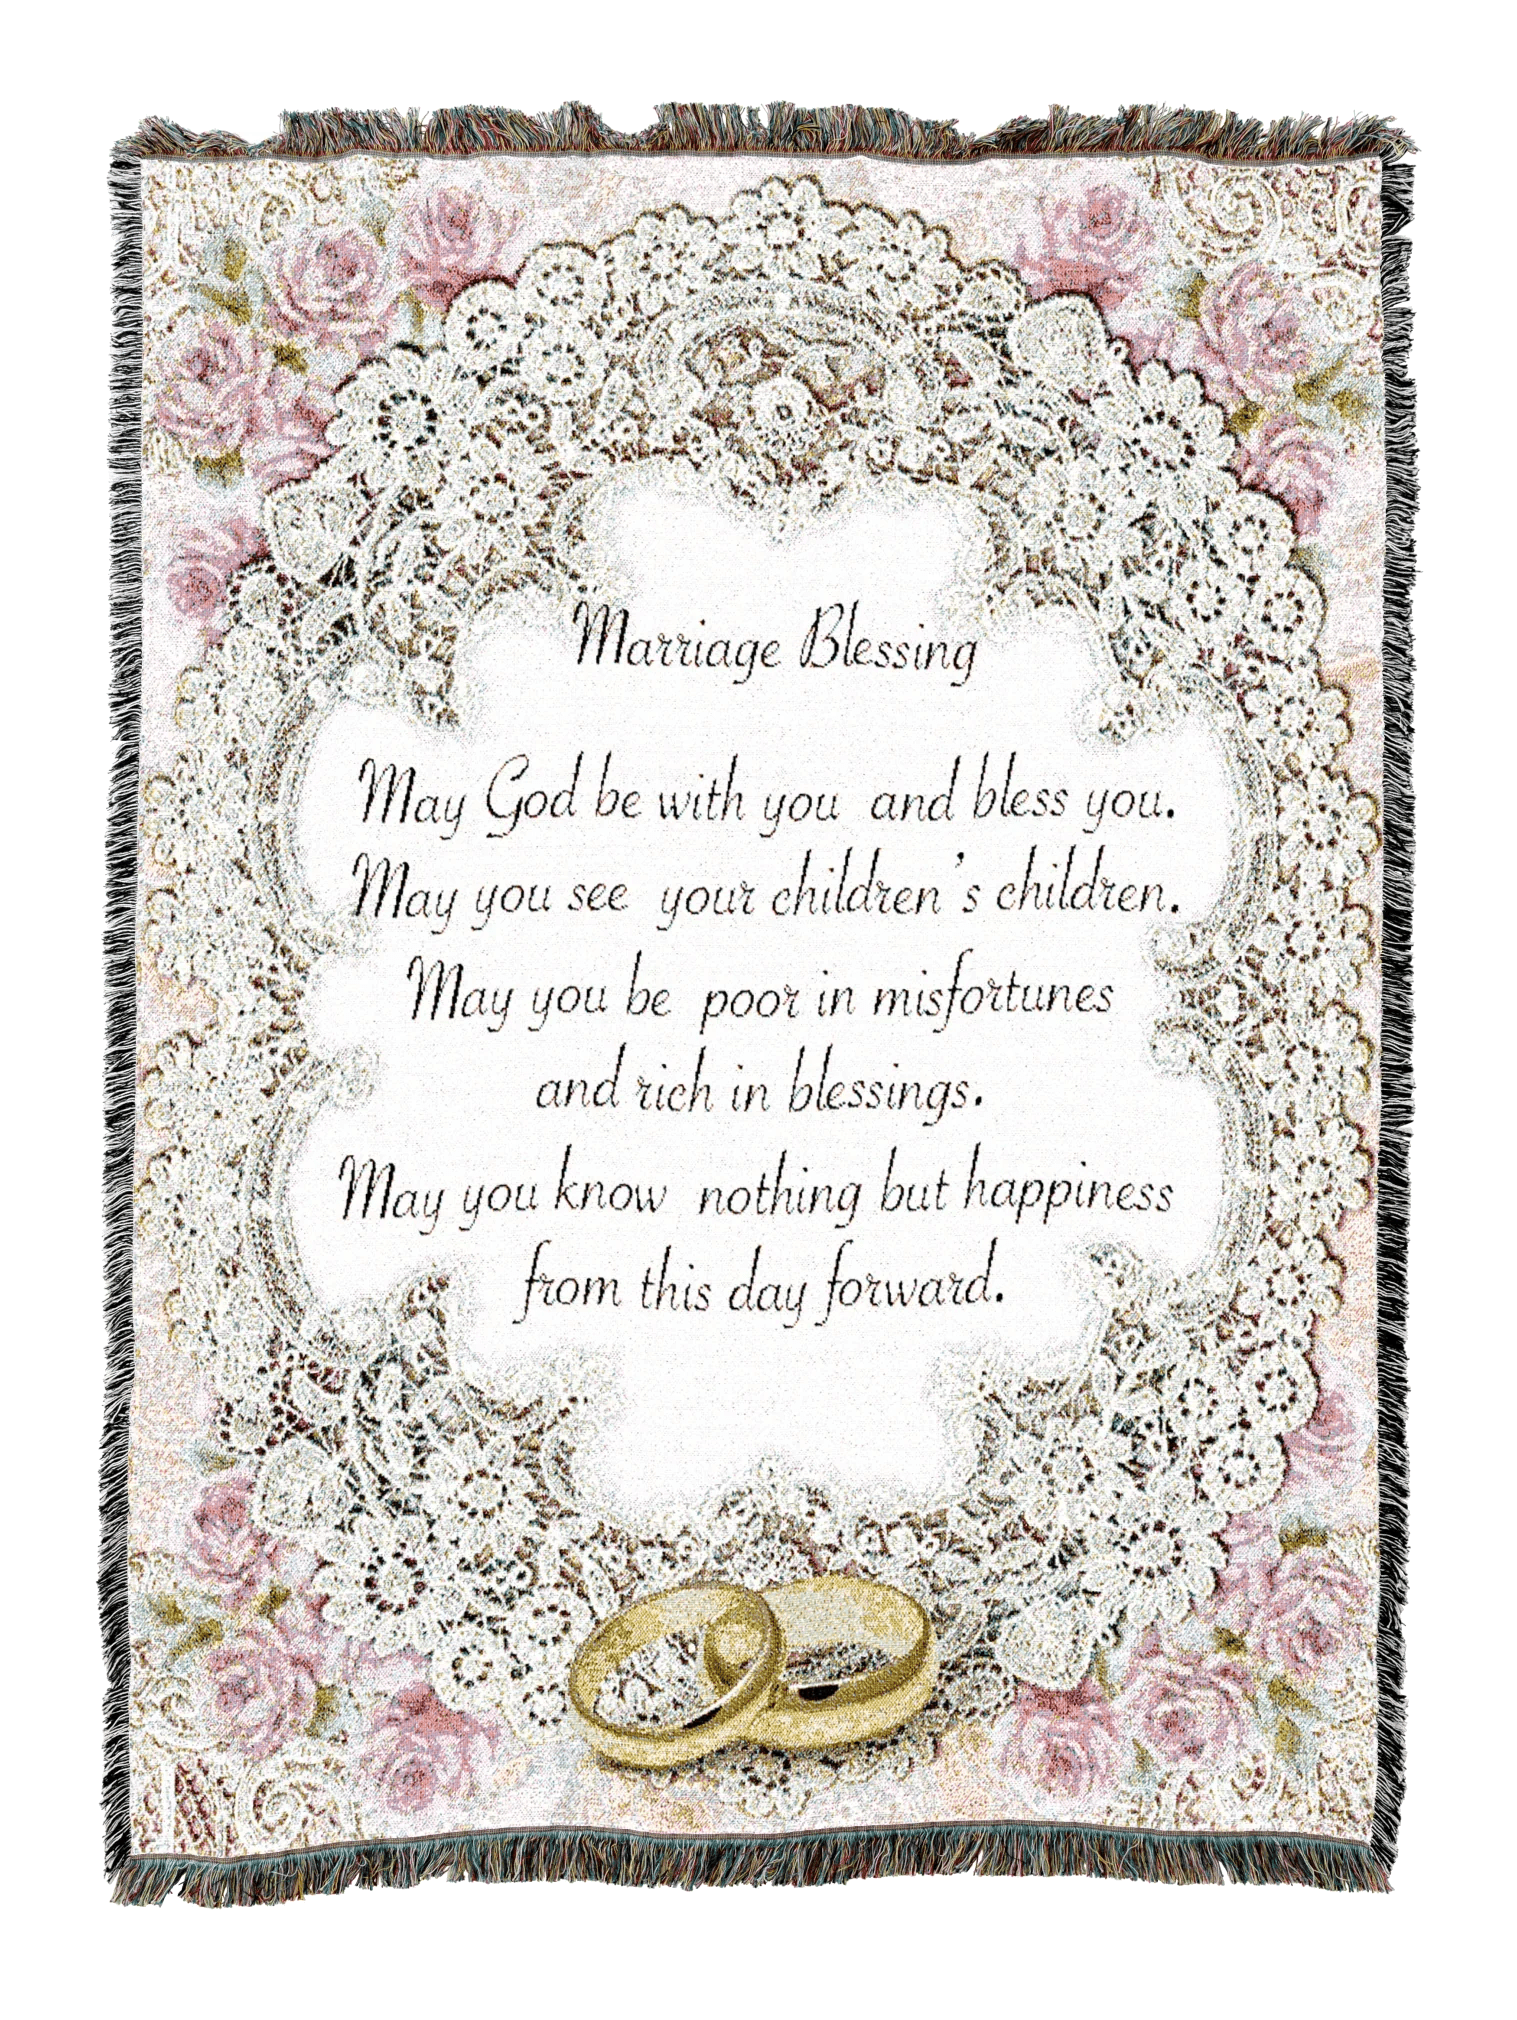 Marriage Blessing
May God be with you and bless you.
May you see your children's children.
May you be poor in misfortunes
and rich in blessings.
May you know nothing but happiness
from this day forward.